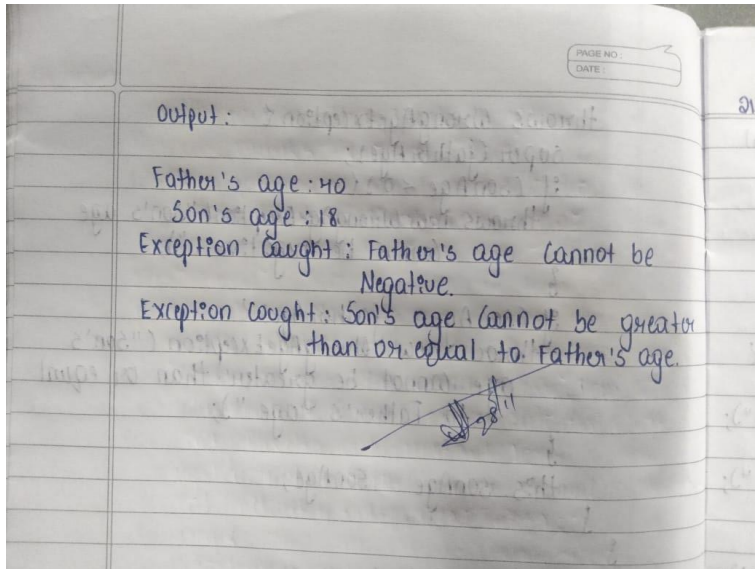 PAGE NO :
DATE :
Output :
Father's age : 40
Son's age : 18
Exception Caught : Father's age Cannot be
Negative.
Exception Caught : Son's age Cannot be greater
than or equal to Father's age.
28/11